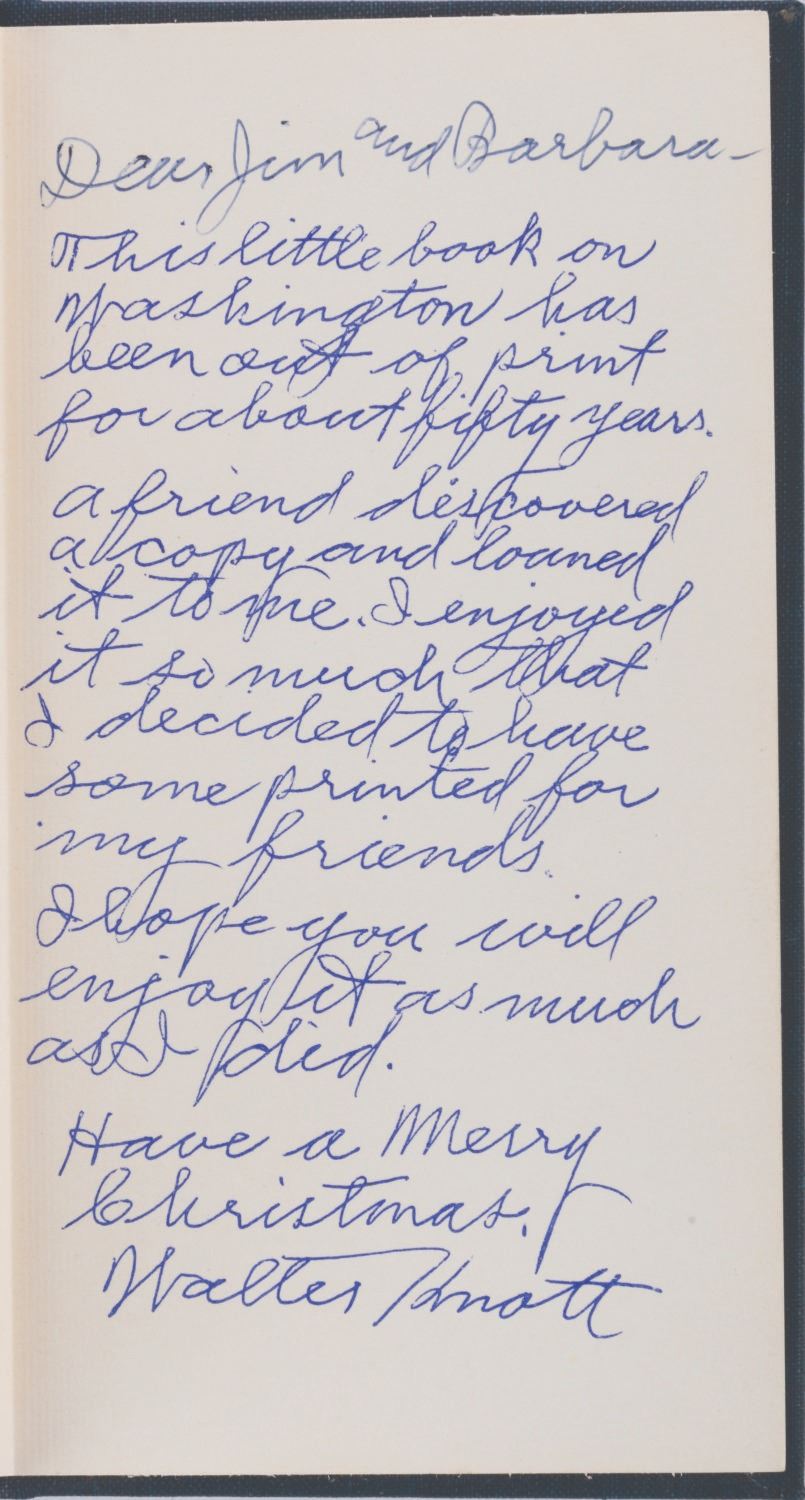 Dear Jim and Barbara-
This little book on
Washington has
been out of print
for about fifty years.
A friend discovered
a copy and loaned
it to me. I enjoyed
it so much that
I decided to have
some printed for
my friends.
I hope you will
enjoy it as much
as I did.
Have a Merry
Christmas.
Walter Knott